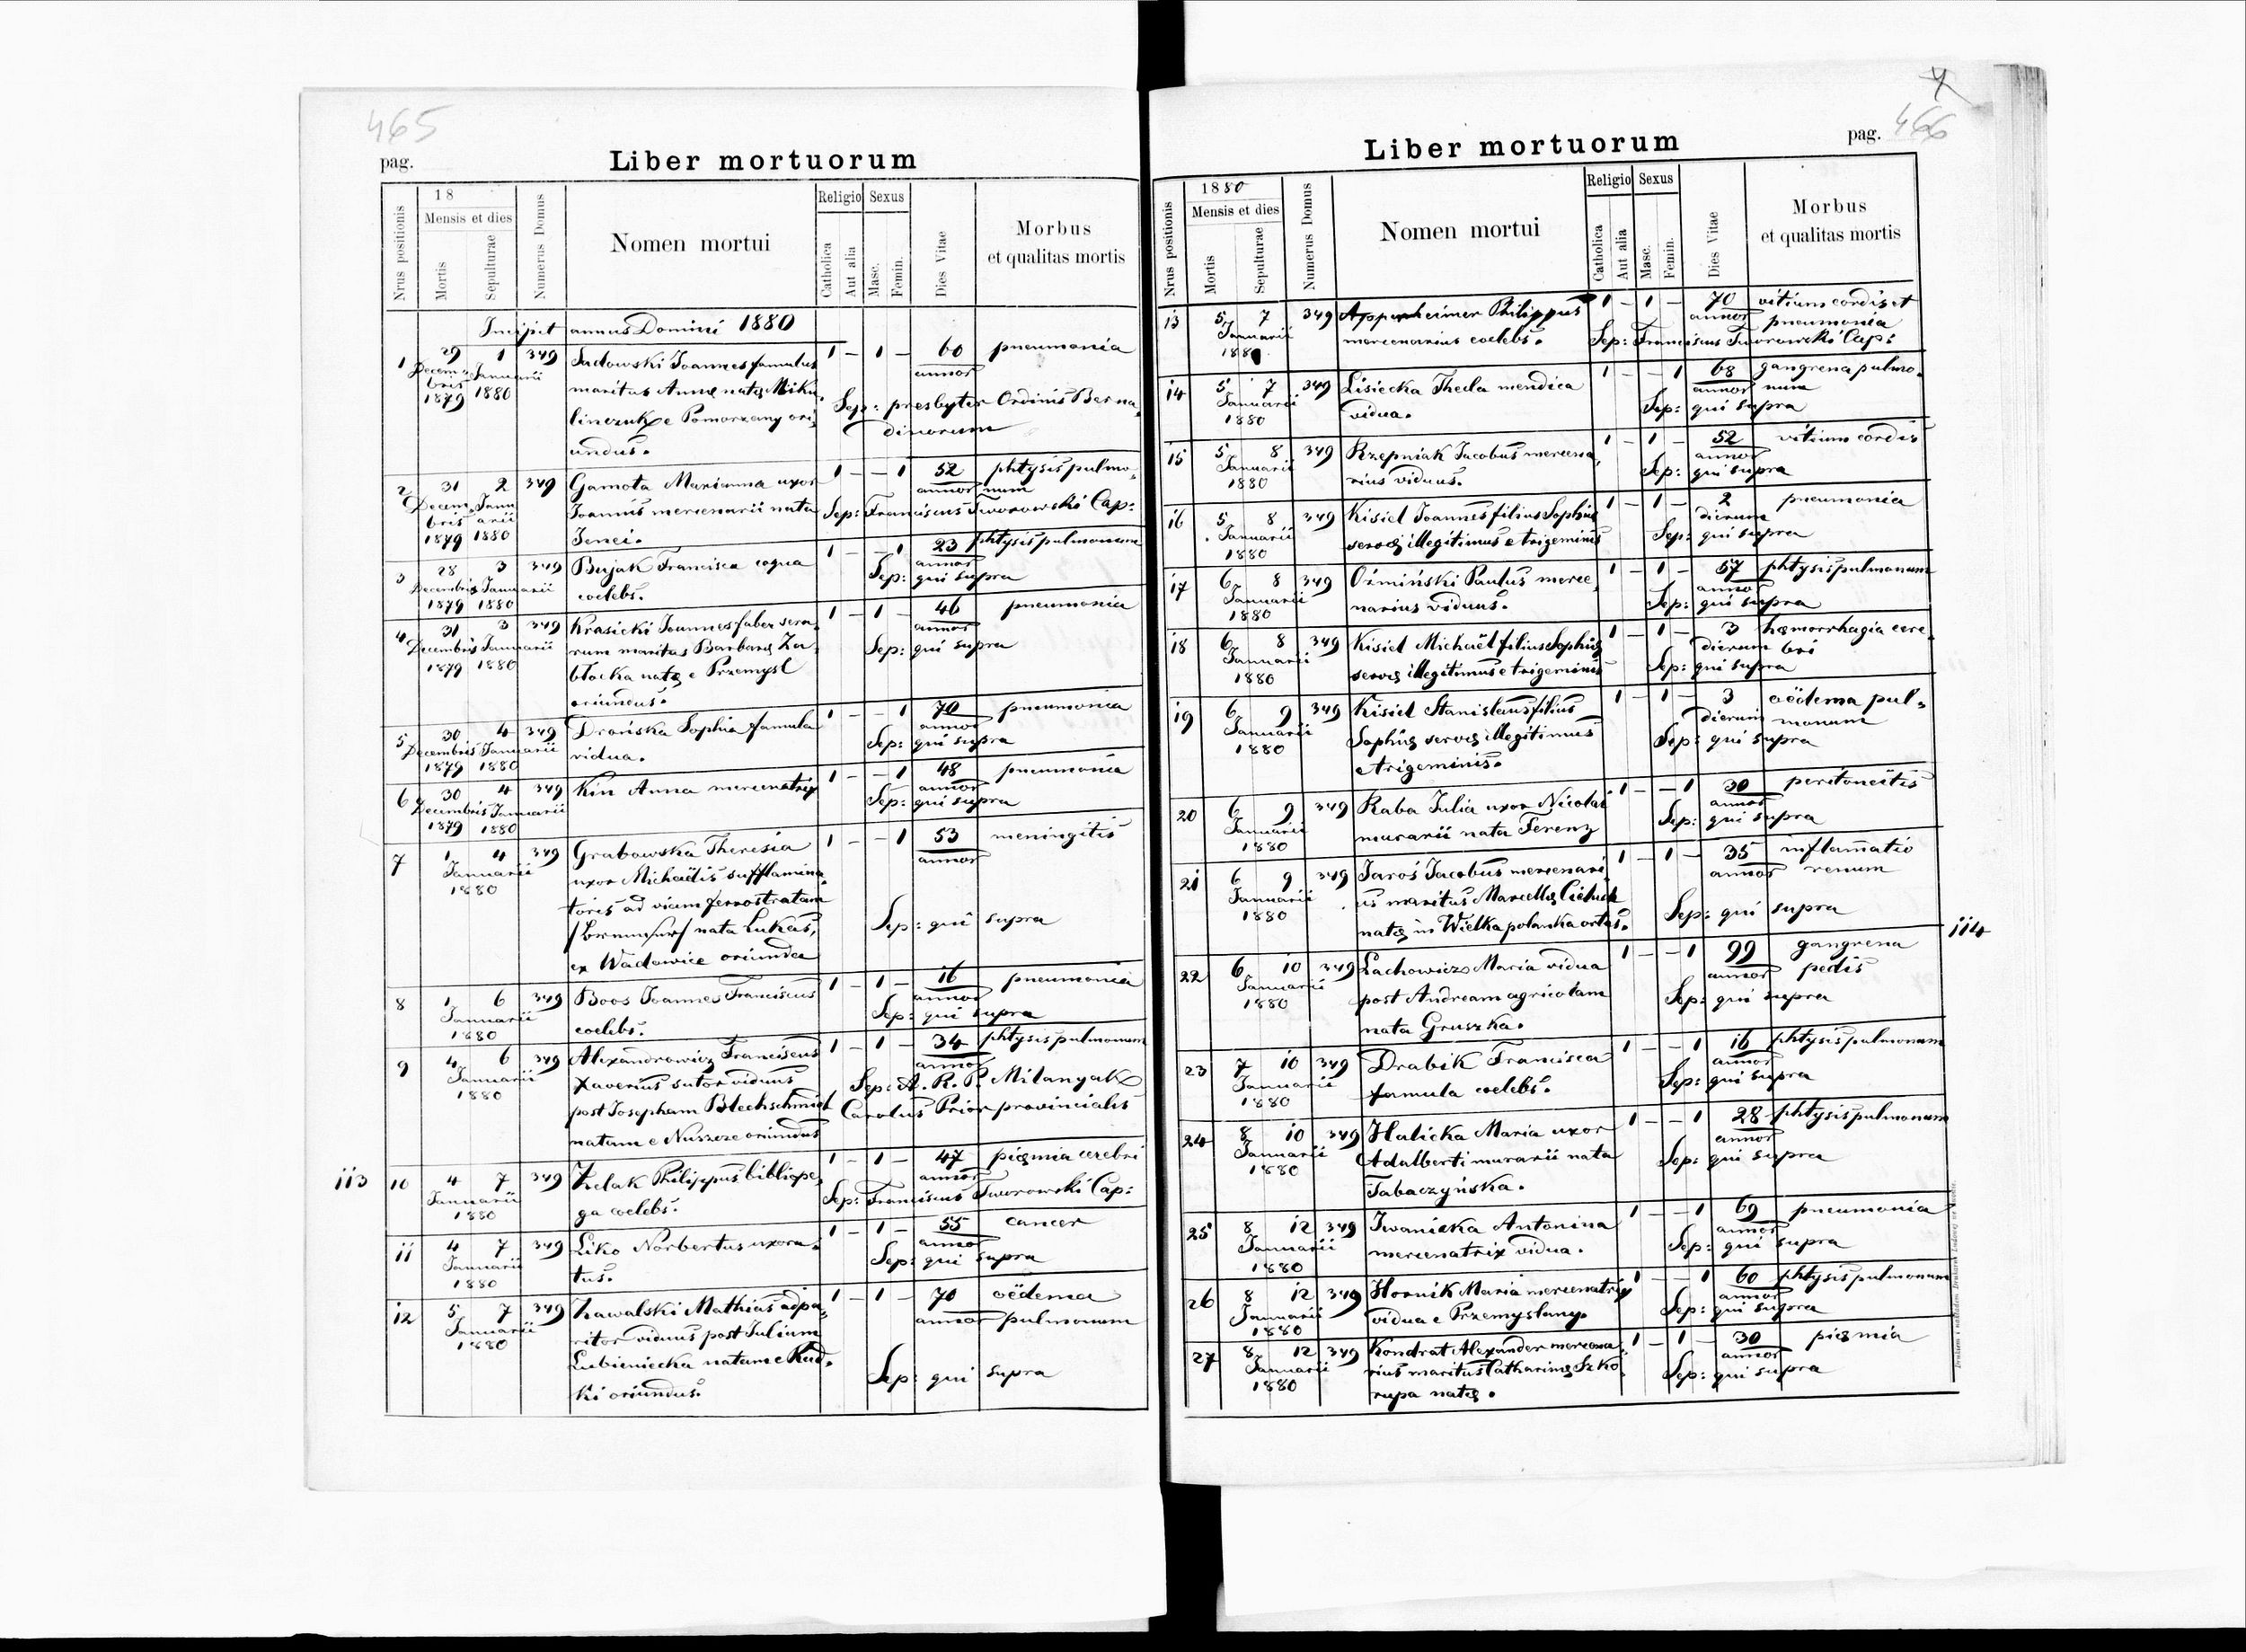 465
pag.
Liber mortuorum
Nrus positionis
18
Mensis et dies
Mortis
Sepulturae
Numerus Domus
Nomen mortui
Religio
Catholica
Aut alia
Sexus
Masc.
Femin.
Dies Vitae
Morbus
et qualitas mortis
Incipit annus Domini 1880
1 29 1 349 Sadowski Joannes famulus 1 – 1 – 60 pneumonia
Decem- Januarii
bris 1880
1879
annor
maritus Annę natę Miku
linczuk e Pomorzany ori
undus.
Sep: presbyter Ordinis Berna
dinorum
2 31 2 349 Gamota Marianna uxor 1 – – 1 52 phtysis pulmo
Decem Janu
bris arii
1879 1880
annor num
Joannis mercenarii nata
Jenei.
Sep: Franciscus Tworowski Cap:
3 28 3 349 Bujak Francisca coqua 1 – – 1 23 phtysis pulmonum
Decembris Januarii
1879 1880
annor
coelebs.
Sep: qui supra
4 31 3 349 Krasicki Joannes faber sera 1 – 1 – 46 pneumonia
Decembris Januarii
1879 1880
annor
rum maritus Barbarę Za
błocka natę e Przemysl
oriundus.
Sep: qui supra
5 30 4 349 Drońska Sophia famula 1 – – 1 70 pneumonia
Decembris Januarii
1879 1880
annor
vidua.
Sep: qui supra
6 30 4 349 Kin Anna mercenatrix 1 – – 1 48 pneumonia
Decembris Januarii
1879 1880
annor
Sep: qui supra
7 1 4 349 Grabowska Theresia 1 – – 1 53 meningitis
Januarii
1880
annor
uxor Michaëlis sufflamina
toris ad viam ferrostratam
nata Lukas,
ex Wadowice oriunda
Sep: qui supra
8 1 6 349 Boos Joannes Franciscus 1 – 1 – 16 pneumonia
Januarii
1880
annor
coelebs.
Sep: qui supra
9 4 6 349 Alexandrowicz Franciscus 1 – 1 – 34 phtysis pulmonum
Januarii
1880
annor
Xaverius sutor viduus
post Josepham Blechschmidt
natam e Nuszcze oriundus
Sep: A. R. P. Milanyak
Carolus Prior provincialis
113
10 4 7 349 Żelak Philippus bibliope 1 – 1 – 47 pięmia cerebri
Januarii
1880
annor
ga coelebs.
Sep: Franciscus Tworowski Cap:
11 4 7 349 Liko Norbertus uxora 1 – 1 – 55 cancer
Januarii
1880
annor
tus.
Sep: qui supra
12 5 7 349 Zawalski Mathias adpa 1 – 1 – 70 oëdema
Januarii
1880
annor pulmonum
ritor viduus post Juliam
Lubieniecka natam e Rud
ki oriundus.
Sep: qui supra
466
pag.
Liber mortuorum
Nrus positionis
1880
Mensis et dies
Mortis
Sepulturae
Numerus Domus
Nomen mortui
Religio
Catholica
Aut alia
Sexus
Masc.
Femin.
Dies Vitae
Morbus
et qualitas mortis
13 5 7 349 Appenheimer Philippus 1 – 1 – 70 vitium cordis et
Januarii
1880.
annor pneumonia
mercenarius coelebs.
Sep: Franciscus Tworowski Cap:
14 5 7 349 Lisiecka Thecla mendica 1 – – 1 68 gangrena pulmo
Januarii
1880
annor num
vidua.
Sep: qui supra
15 5 8 349 Rzepniak Jacobus mercena 1 – 1 – 52 vitium cordis
Januarii
1880
annor
rius viduus.
Sep: qui supra
16 5 8 349 Kisiel Joannes filius Sophię 1 – 1 – 2 pneumonia
Januarii
1880
dierum
servę illegitimus e trigeminis
Sep: qui supra
17 6 8 349 Oźmiński Paulus merce 1 – 1 – 57 phtysis pulmonum
Januarii
1880
annor
narius viduus.
Sep: qui supra
18 6 8 349 Kisiel Michaël filius Sophię 1 – 1 – 3 hęmorrhagia cere
Januarii
1880
dierum bri
servę illegitimus e trigeminis
Sep: qui supra
19 6 9 349 Kisiel Stanislaus filius 1 – 1 – 3 oëdema pul
Januarii
1880
dierum monum
Sophię servę illegitimus
e trigeminis.
Sep: qui supra
20 6 9 349 Raba Julia uxor Nicolai 1 – – 1 30 peritoneitis
Januarii
1880
annor
murarii nata Ferenz
Sep: qui supra
21 6 9 349 Jaroś Jacobus mercenari 1 – 1 – 35 inflamatio
Januarii
1880
annor renum
us maritus Marcellę Cieluch
natę in Wielkapolanka ortus.
Sep: qui supra
114
22 6 10 349 Lachowicz Maria vidua 1 – – 1 99 gangrena
Januarii
1880
annor pedis
post Andream agricolam
nata Gruszka.
Sep: qui supra
23 7 10 349 Drabik Francisca 1 – – 1 16 phtysis pulmonum
Januarii
1880
annor
famula coelebs.
Sep: qui supra
24 8 10 349 Halicka Maria uxor 1 – – 1 28 phtysis pulmonum
Januarii
1880
annor
Adalberti murarii nata
Tabaczyńska.
Sep: qui supra
25 8 12 349 Iwanicka Antonina 1 – – 1 69 pneumonia
Januarii
1880
annor
mercenatrix vidua.
Sep: qui supra
26 8 12 349 Hornik Maria mercenatrix 1 – – 1 60 phtysis pulmonum
Januarii
1880
annor
vidua e Przemyslany.
Sep: qui supra
27 8 12 349 Kondrat Alexander mercena 1 – 1 – 30 pięmia
Januarii
1880
annor
rius maritus Catharinę Szko
rupa natę.
Sep: qui supra